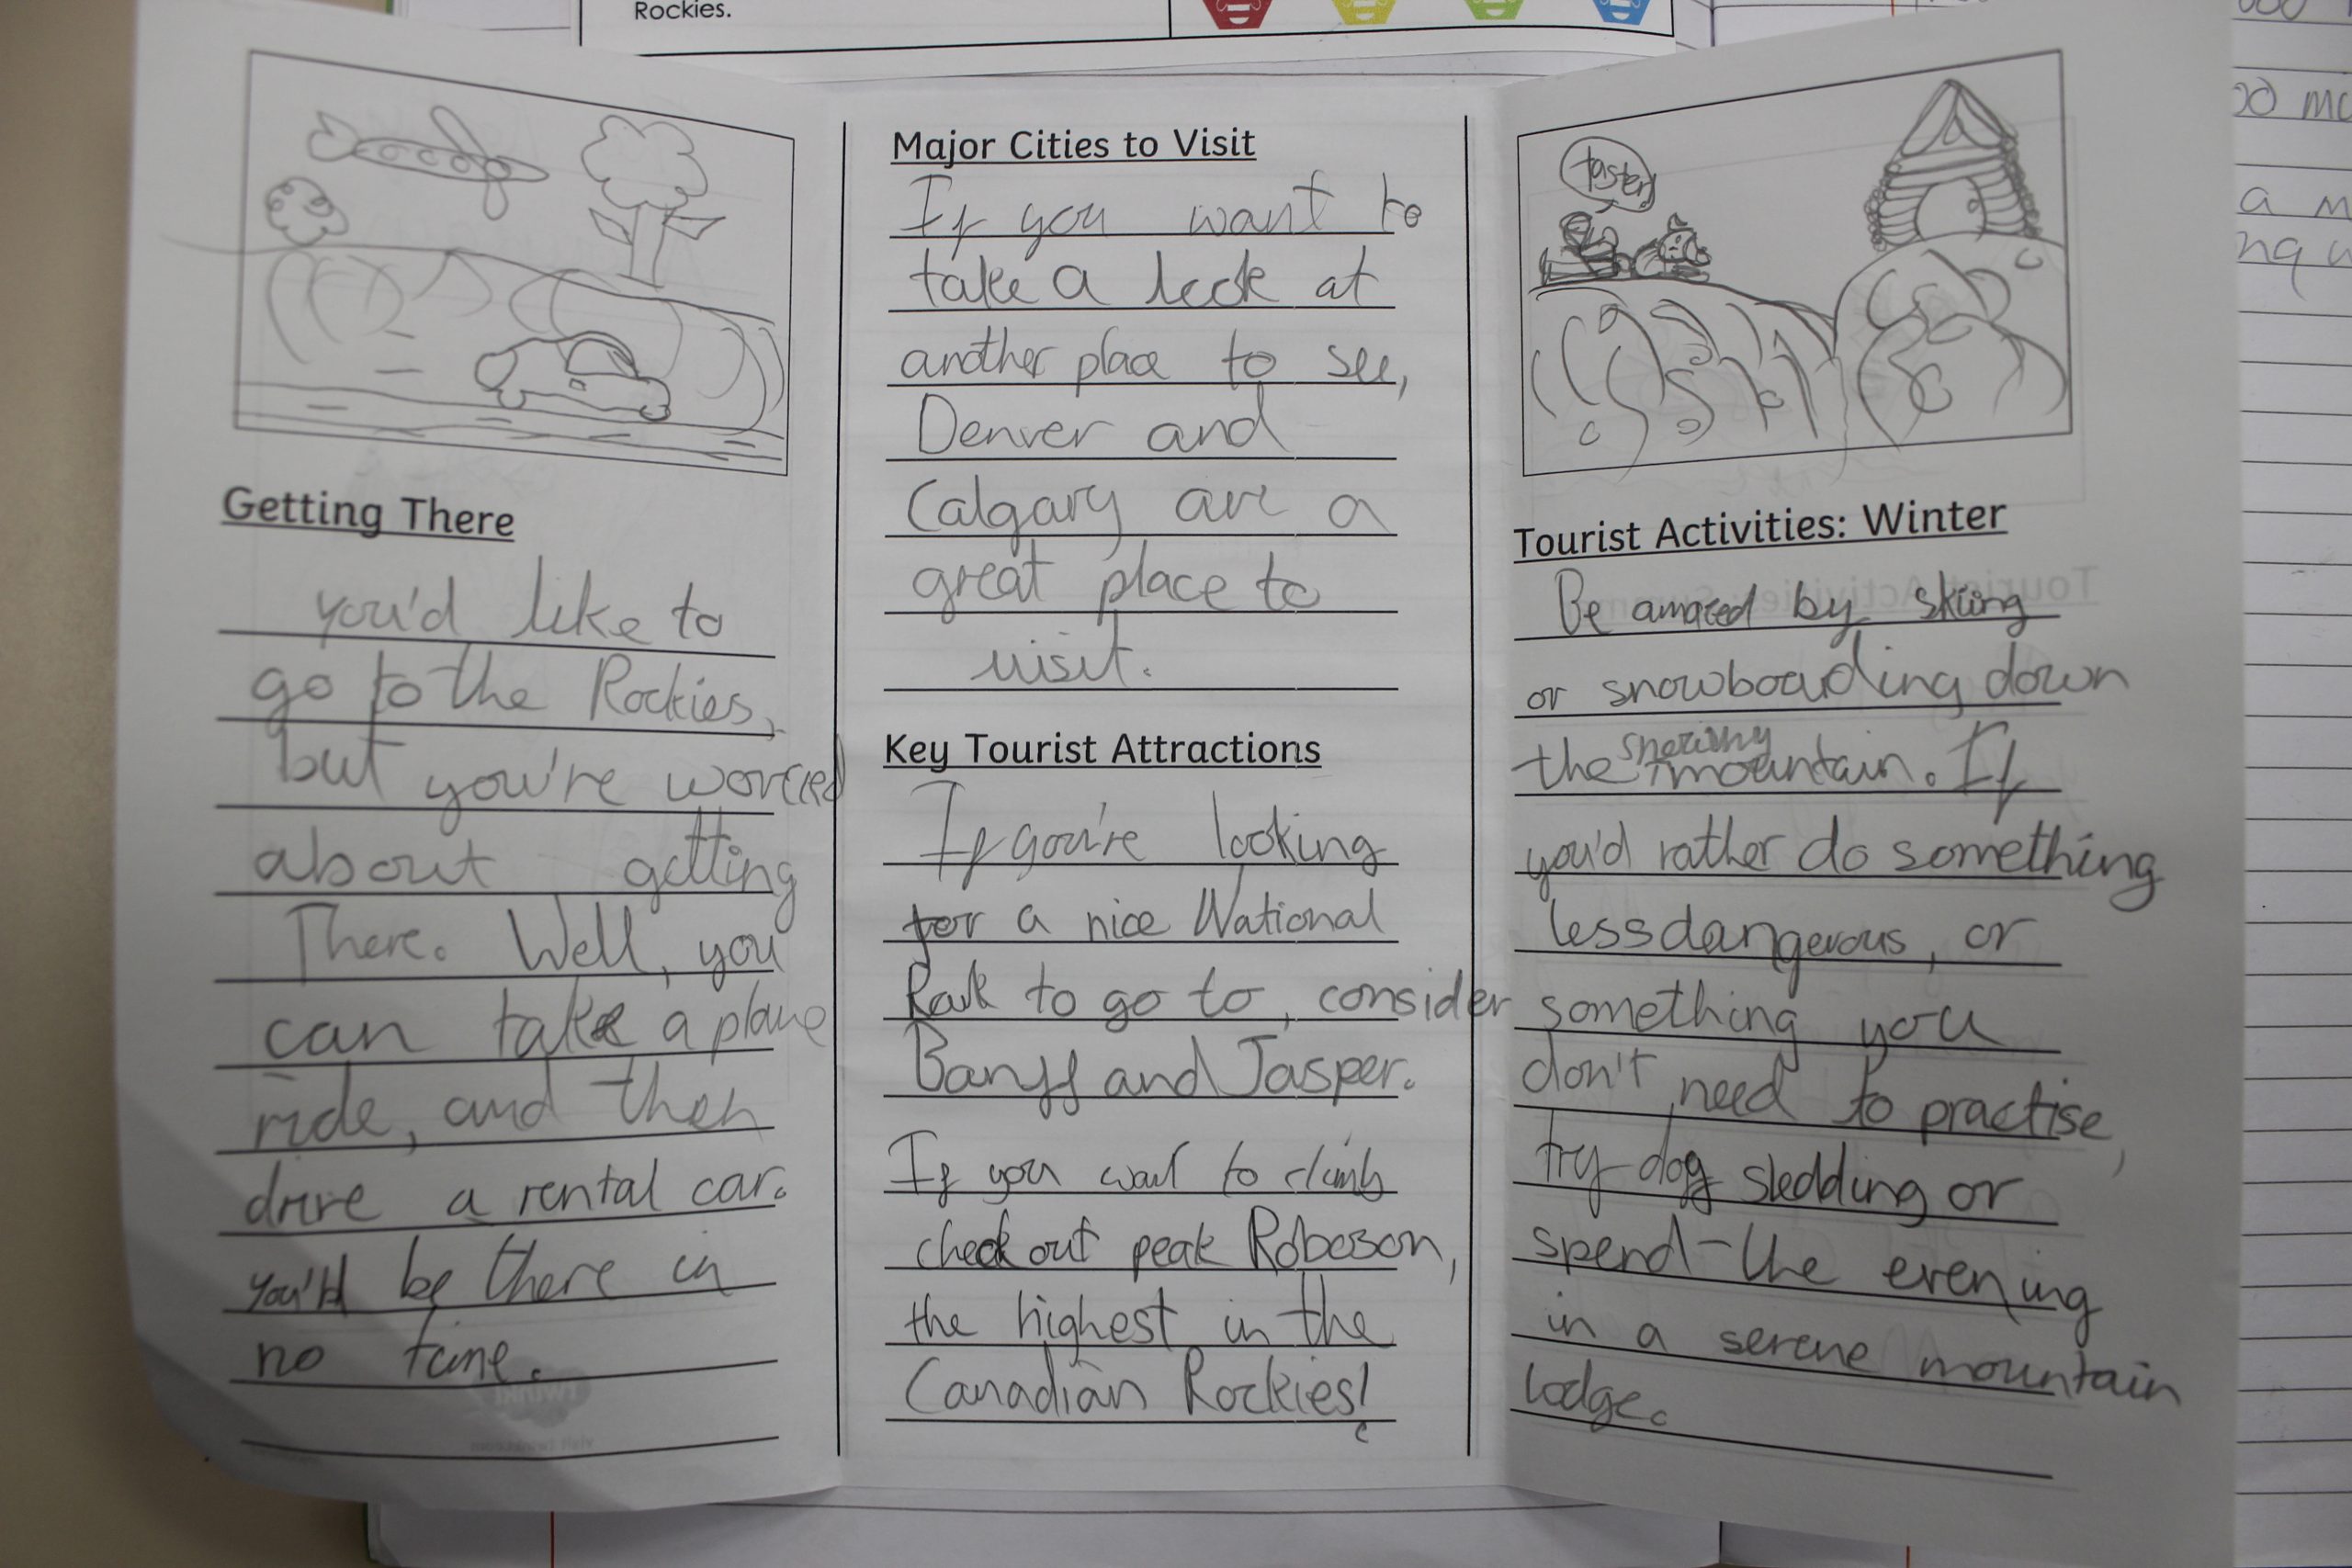 Rockies.
Getting There
you'd like to
go to the Rockies,
but you're worried
about getting
There. Well, you
can take a plane
ride, and then
drive a rental car.
you'd be there in
no time.
Major Cities to Visit
If you want to
take a look at
another place to see,
Denver and
Calgary are a
great place to
visit.
Key Tourist Attractions
If you're looking
for a nice National
Park to go to, consider
Banff and Jasper.
If you want to climb
check out peak Roboson,
the highest in the
Canadian Rockies!
faster
Tourist Activities: Winter
Be amazed by skiing
or snowboarding down
the mountain. If
you'd rather do something
less dangerous, or
something you
don't need to practise,
try dog sledding or
spend the evening
in a serene mountain
lodge.